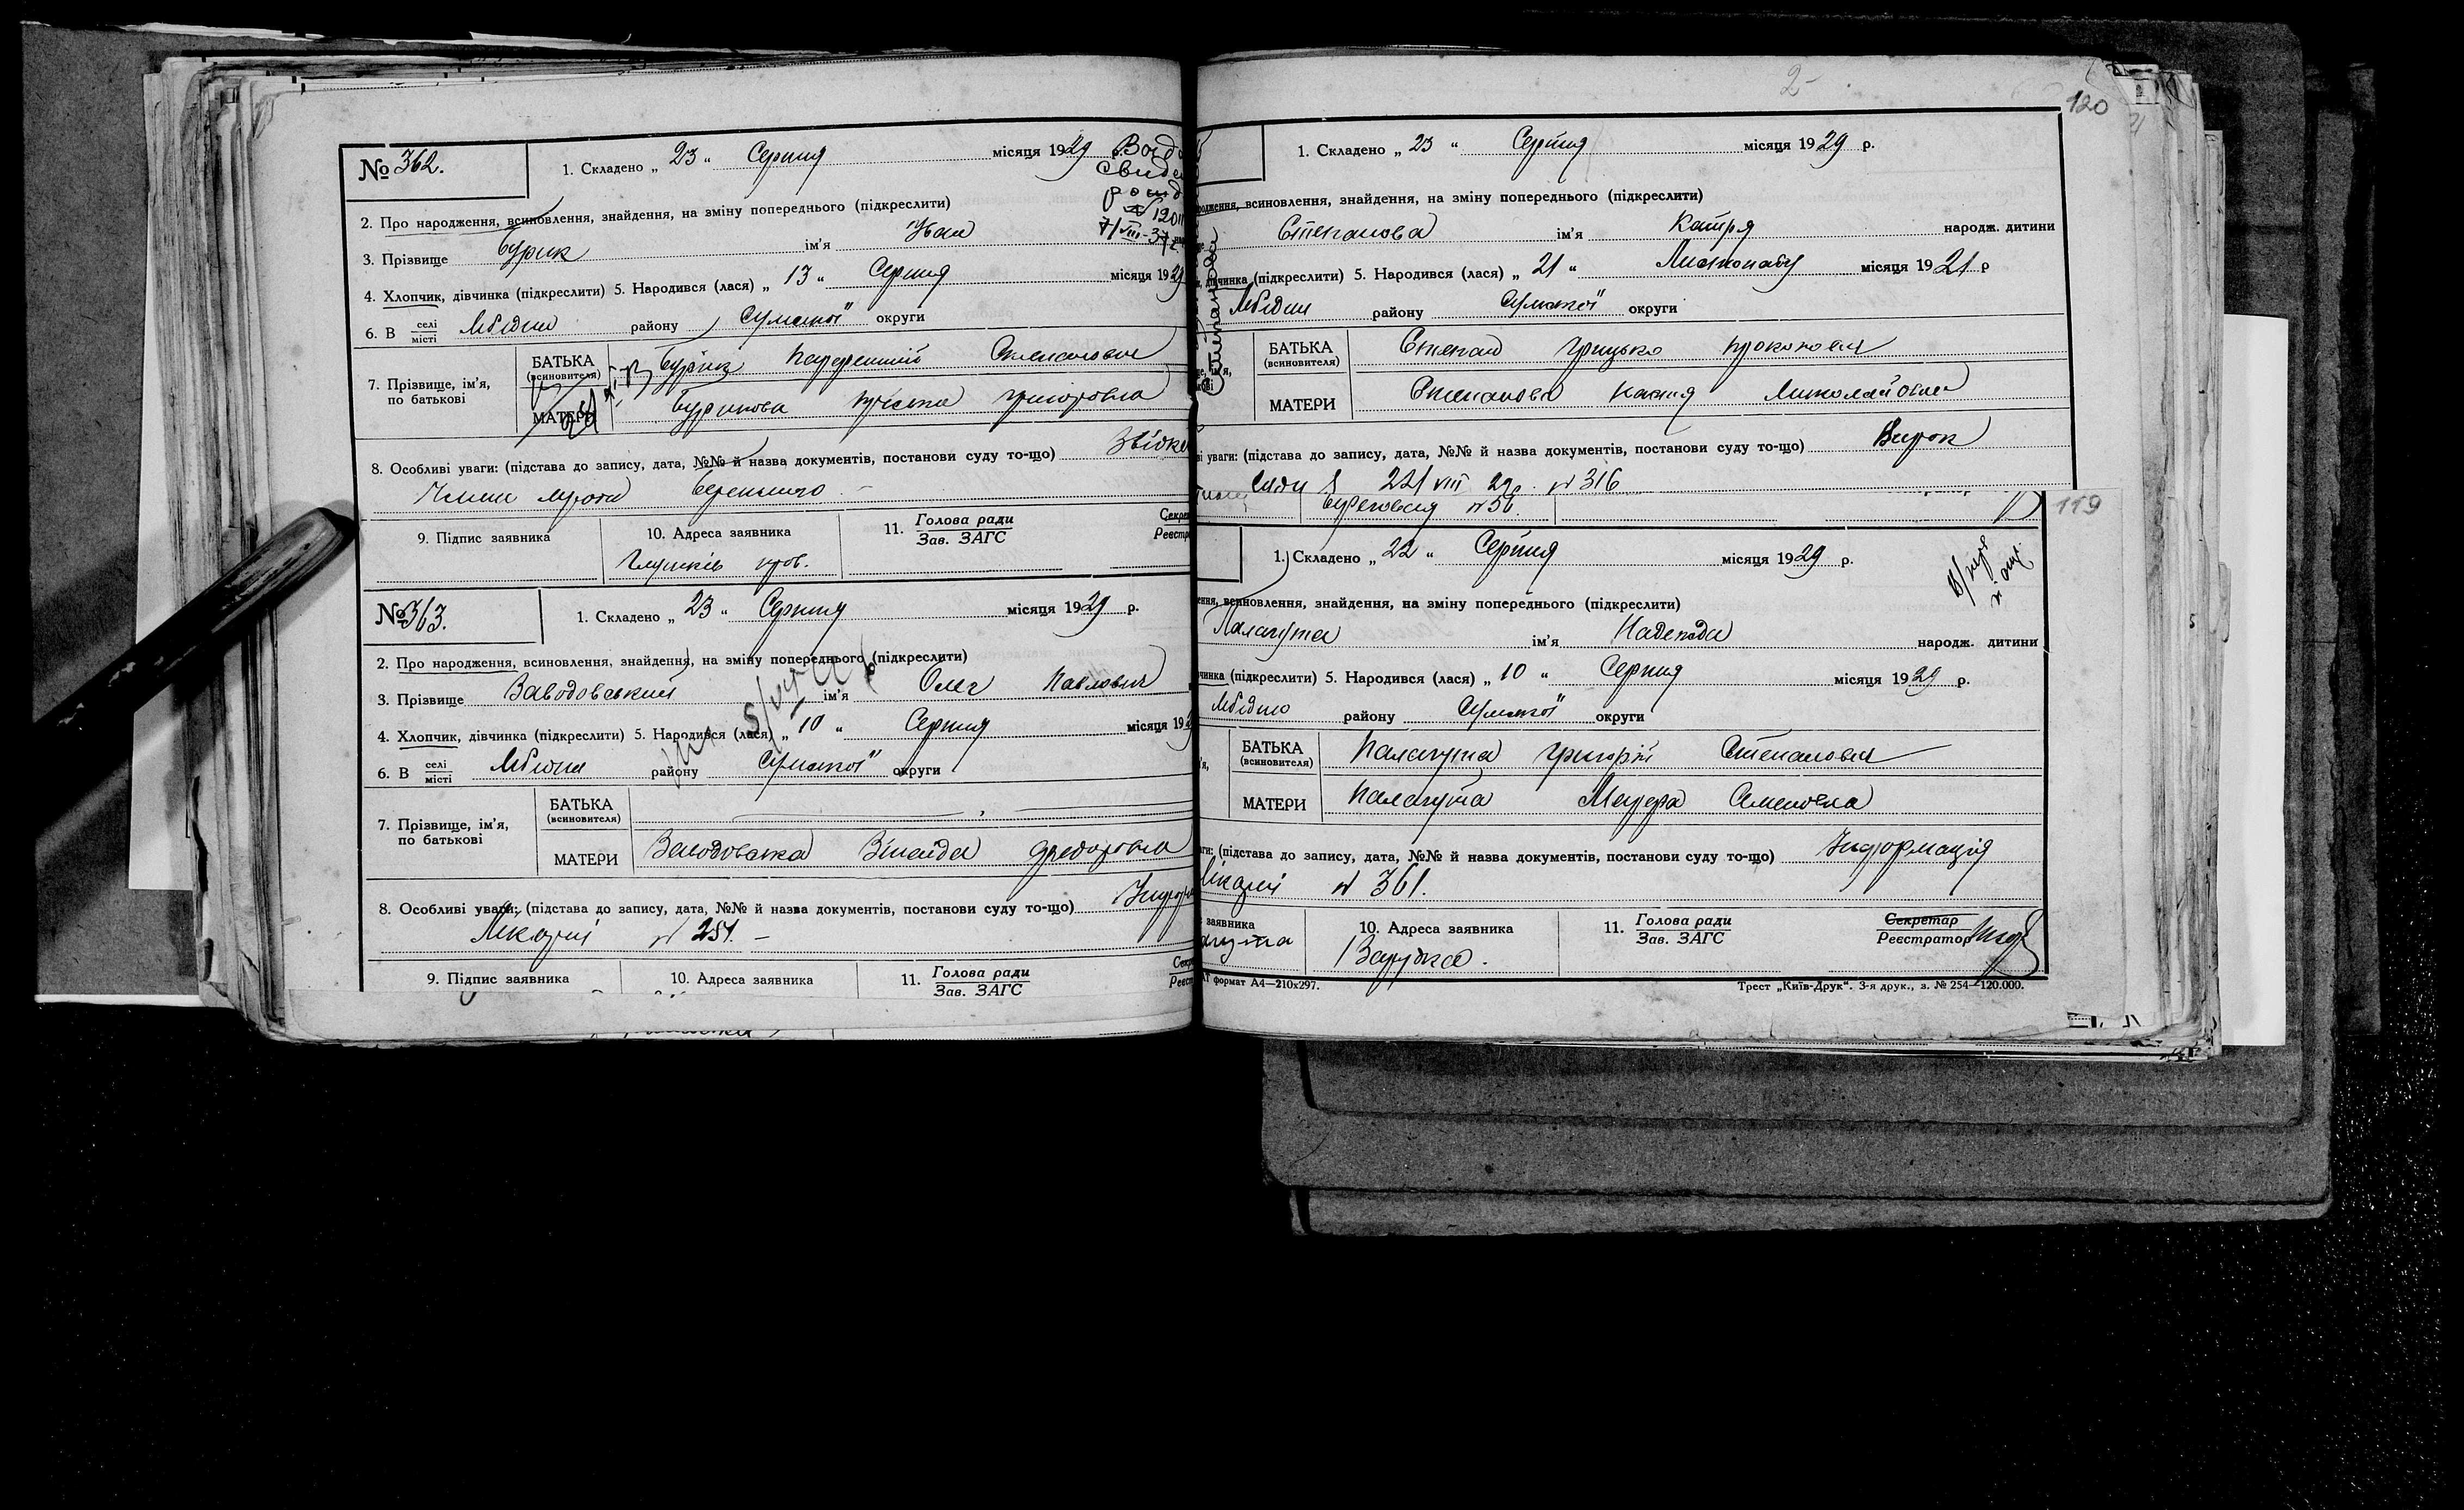 № 362. 1. Складено „ 23 “ Серпня місяця 1929
2. Про народження, всиновлення, знайдення, на зміну попереднього (підкреслити)
3. Прізвище Бурик ім'я Іван
4. Хлопчик, дівчинка (підкреслити) 5. Народився (лася) „ 13 “ Серпня місяця 1929
6. В селі місті Лебедин району Сумської округи
7. Прізвище, ім'я, по батькові
БАТЬКА (всиновителя) Бурик Парфеній Степанович
МАТЕРИ Бурикова Христя Григоровна
8. Особливі уваги: (підстава до запису, дата, №№ й назва документів, постанови суду то-що)
9. Підпис заявника 10. Адреса заявника 11. Голова ради Зав. ЗАГС
№ 363. 1. Складено „ 23 “ Серпня місяця 1929 р.
2. Про народження, всиновлення, знайдення, на зміну попереднього (підкреслити)
3. Прізвище Заводовський ім'я Олег Павлович
4. Хлопчик, дівчинка (підкреслити) 5. Народився (лася) „ 10 “ Серпня місяця 19
6. В селі місті Лебедин району Сумської округи
7. Прізвище, ім'я, по батькові
БАТЬКА (всиновителя)
МАТЕРИ Заводовська Зінаїда Федоровна
8. Особливі уваги: (підстава до запису, дата, №№ й назва документів, постанови суду то-що)
Лікарні № 251. –
9. Підпис заявника 10. Адреса заявника 11. Голова ради Зав. ЗАГС
2
120
1. Складено „ 23 “ Серпня місяця 1929 р.
всиновлення, знайдення, на зміну попереднього (підкреслити)
Степанова ім'я Катря народж. дитини
(підкреслити) 5. Народився (лася) „ 21 “ Листопаду місяця 1921 р
Лебедин району Сумської округи
БАТЬКА (всиновителя) Степанов Грицько Прокопович
МАТЕРИ Степанова Катря Миколайовна
уваги: (підстава до запису, дата, №№ й назва документів, постанови суду то-що) Вирок
22/VIII 29р. № 316
№ 56.
119
1. Складено „ 22 “ Серпня місяця 1929 р.
всиновлення, знайдення, на зміну попереднього (підкреслити)
Палагута ім'я Надежда народж. дитини
(підкреслити) 5. Народився (лася) „ 10 “ Серпня місяця 1929 р.
Лебедин району Сумської округи
БАТЬКА (всиновителя) Палагута Григорій Степанович
МАТЕРИ Палагута Семеновна
(підстава до запису, дата, №№ й назва документів, постанови суду то-що) Інформація
Лікарні № 361.
заявника 10. Адреса заявника 11. Голова ради Зав. ЗАГС Секретар Реєстратор
формат А4—210х297. Трест „Київ-Друк“. 3-я друк., з. № 254—120.000.